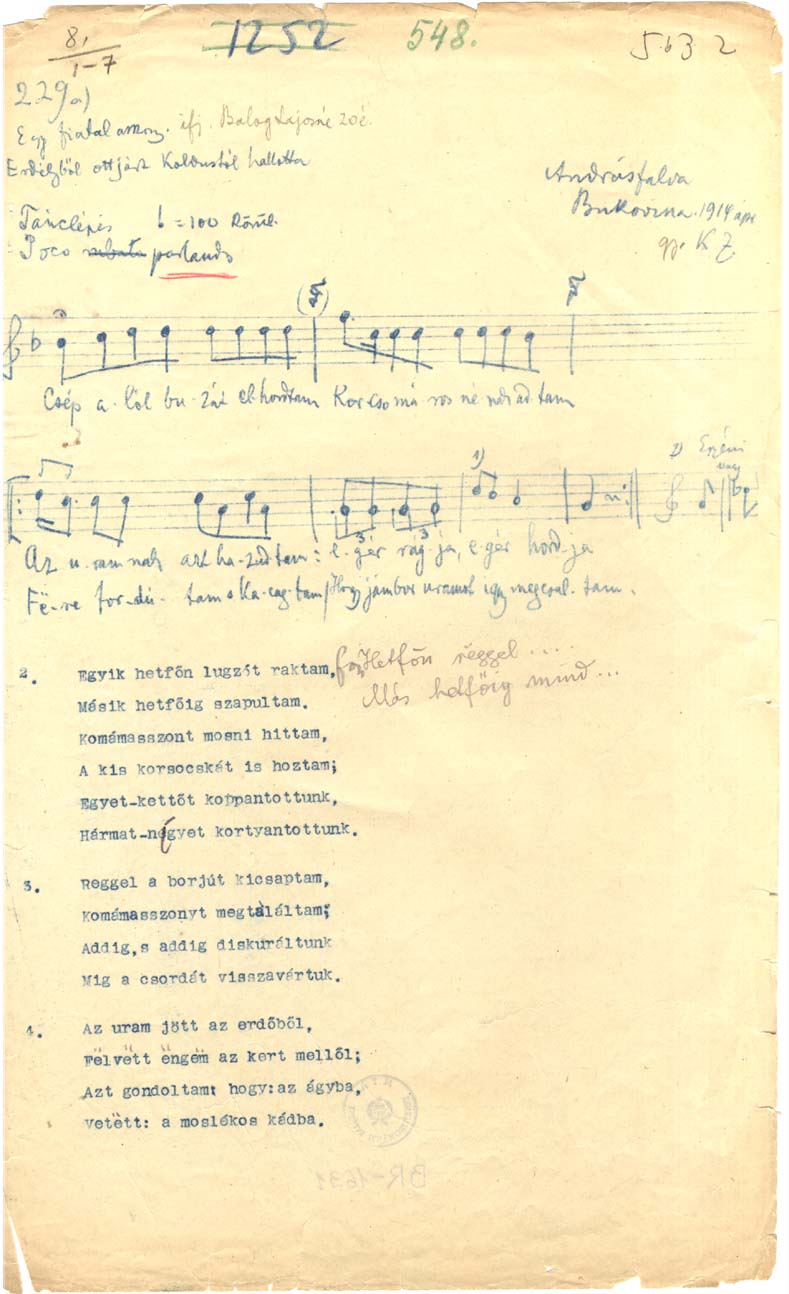 81
1-7
1252
548.
5632
229a)
Egy fiatal asszony. ifj. Balog Lajosné 20é.
Erdélyből ottjárt Koldustól hallotta
Andrásfalva
Bukovina. 1914 ápr
gy. K Z.
Tánclépés = 100 Körül.
Poco rubato parlando
Csép a-lól bu-zát el-hordtam Korcsomá-ros-né-nak ad-tam
1)
2)
vagy
3 3
Az u-ram-nak azt ha-zud-tam: e-gér rág-ja, e-gér hord-ja
Fë-re for-dú-tam s Ka-cag-tam, Hogy jámbor uramot így megcsal-tam.
2. Egyik hetfőn lugzót raktam, Hetfőn reggel ....
Más hetfőig mind ...
Másik hetfőig szapultam.
Komámasszont mosni hittam,
A kis korsocskát is hoztam;
Egyet-kettőt koppantottunk,
Hármat-négyet kortyantottunk.
3. Reggel a borjút kicsaptam,
Komámasszonyt megtaláltam;
Addig,s addig diskuráltunk
Mig a csordát visszavártuk.
4. Az uram jött az erdőből,
Fëlvëtt ëngëm az kert mellől;
Azt gondoltam: hogy: az ágyba,
Vetëtt: a moslékos kádba.
BR-1631